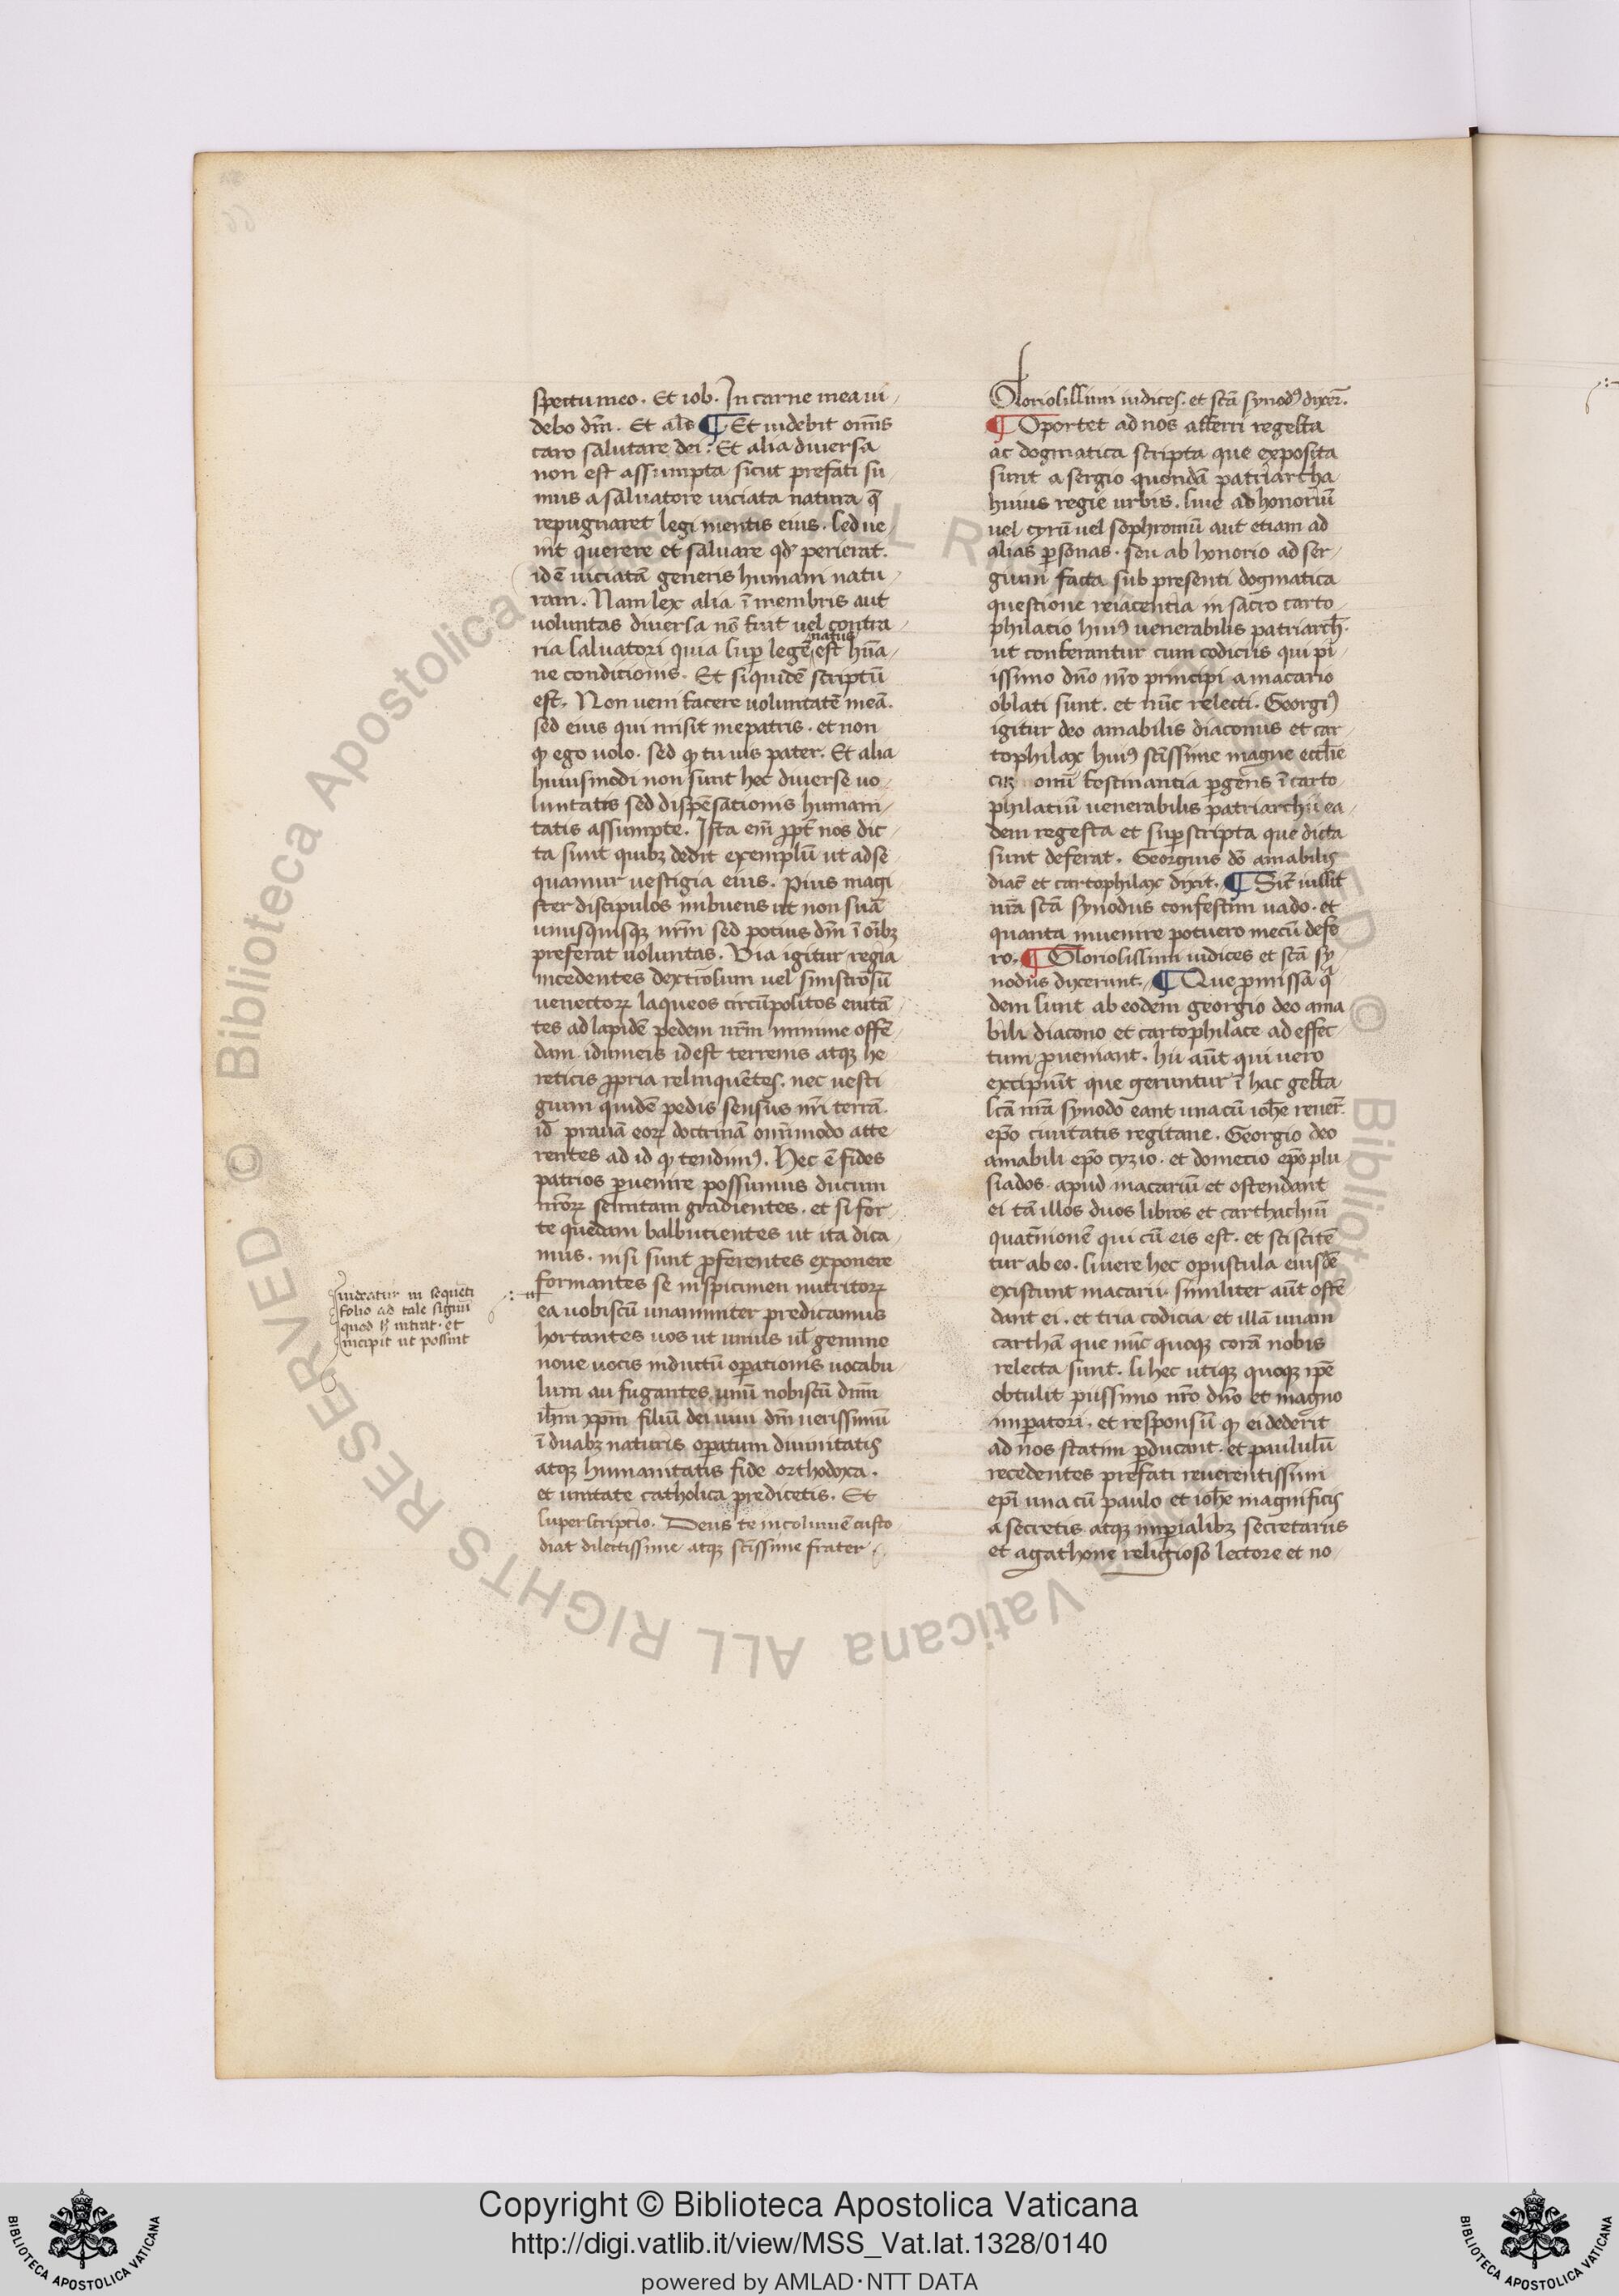 spectu meo. Et iob. In carne mea ui-
debo dm̄. Et alr̄ ¶ Et uidebit omīs
caro salutare dei. Et alia diuersa
non est assumpta sicut prefati su-
mus a saluatore uiciata natura q̄
repugnaret legi mentis eius. sed ue-
nit querere et saluare qd̓ perierat.
id ē uiciatā generis humani natu-
ram. Nam lex alia ī membris aut
uoluntas diuersa nō fuit uel contra-
ria saluatori quia sup̱ legē natus est hūa-
ne conditionis. Et siquidē scriptū
est. Non ueni facere uoluntatē meā.
sed eius qui misit me patris. et non
qḏ ego uolo. sed qḏ tu uis pater. Et alia
huiusmodi non sunt hec diuerse uo-
luntatis sed dispēsationis humani-
tatis assumpte. Ista em̄ ꝓpt̄ nos dic-
ta sunt quibꝫ dedit exemplū ut adse-
quamur uestigia eius. Pius magi-
ster discipulos imbuens ut non suā
unusquisqꝫ nr̄m sed potius dm̄ ī oībꝫ
preferat uoluntas. Via igitur regia
incedentes dextrorsum uel sinistrorsū
uenectorꝝ laqueos circūpositos euitā-
tes ad lapidē pedem nr̄m minime offē-
dam idumeis id est terrenis atqꝫ he-
reticis ꝓpria relinquētes. nec uesti-
gium quidē pedis sensus nr̄i terrā.
id prauā eorꝝ doctrinā omīmodo atte-
rentes ad id qḏ tendimꝰ. Hec ē fides
patrios ꝑuenire possumus ducum
nr̄orꝝ semitam gradientes. et si for-
te quedam balbutientes ut ita dica-
mus. nisi sunt ꝓferentes exponere
formantes se inspicimen nutritorꝝ
ea uobiscū unanimiter predicamus
hortantes uos ut unius ul̄ gemine
noue uocis inductū oꝑationis uocabu-
lum aufugantes unū nobiscū dnm̄
ih̄m xp̄m filiū dei uiui dm̄ uerissimū
ī duabꝫ naturis oꝑatum diuinitatis
atqꝫ humanitatis fide orthodoxa.
et unitate catholica predicetis. Et
superscriptio. Deus te incolumē custo-
diat dilectissime atqꝫ sc̄issime frater
uideatur in sequēti
folio ad tale signū
incipit ut possint
Gloriosissimi iudices. et sc̄ā synodꝰ dixer̄.
¶ Oportet ad nos afferri regesta
ac dogmatica scripta que exposita
sunt a sergio quondā patriarcha
huius regie urbis. siue ad honoriū
uel cyrū uel sophroniū aut etiam ad
alias ꝑsonas. seu ab honorio ad ser-
gium facta sub presenti dogmatica
questione reiacentia in sacro carto-
philatio huiꝰ uenerabilis patriarch̄.
ut conferantur cum codiciis qui pi-
issimo dn̄o nr̄o principi a macario
oblati sunt. et nūc relecti. Georgiꝰ
igitur deo amabilis diaconus et car-
tophilax huiꝰ sc̄issime magne eccl̄ie
cū omī festinantia ꝑgens ī carto-
philatiū uenerabilis patriarchii ea-
dem regesta et sup̱scripta que dicta
sunt deferat. Georgius dō amabilis
diac̄ et cartophilax dixit. ¶ Sic̄ iussit
ur̄a sc̄ā synodus confestim uado. et
quanta inuenire potuero mecū defe-
ro. ¶ Gloriosissimi iudices et sc̄ā sy-
nodus dixerunt. ¶ Que ꝓmissa q̄-
dem sunt ab eodem georgio deo ama-
bili diacono et cartophilace ad effec-
tum ꝓueniant. hii aūt qui uero
excipiūt que geruntur ī hac gesta
sc̄ā nr̄a synodo eant una cū ioh̄e reuer̄.
ep̄o ciuitatis regitane. Georgio deo
amabili ep̄o cyzio. et domecio ep̄o plu-
siados. apud macariū et ostendant
ei tā illos duos libros et carthachiū
quat̄nionē qui cū eis est. et sciscitē-
tur ab eo. si uere hec opuscula eiusdē
existunt macarii. similiter aūt ostē-
dant ei. et tria codicia et illā unam
carthā que nūc quoqꝫ corā nobis
relecta sunt. si hec utiqꝫ quoqꝫ ip̄e
obtulit piissimo nr̄o dn̄o et magno
imꝑatori. et responsū qḏ ei dederit
ad nos statim ꝑducant. et paululū
recedentes prefati reuerentissimi
ep̄i una cū paulo et ioh̄e magnificis
a secretis atqꝫ imꝑialibꝫ secretariis
et agathone religioso lectore et no-
Copyright © Biblioteca Apostolica Vaticana
http://digi.vatlib.it/view/MSS_Vat.lat.1328/0140
powered by AMLAD·NTT DATA
BIBLIOTECA APOSTOLICA VATICANA
BIBLIOTECA APOSTOLICA VATICANA
© Biblioteca Apostolica Vaticana ALL RIGHTS RESERVED
© Biblioteca Apostolica Vaticana ALL RIGHTS RESERVED